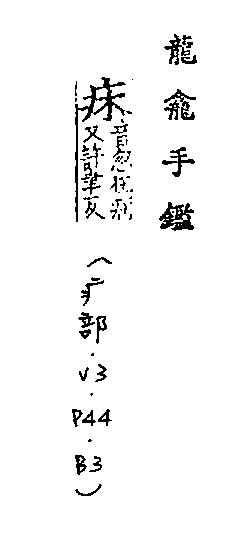 龍龕手鑑
痳
音忽狂病
又許聿反
(疒部.V3.P44.B3)